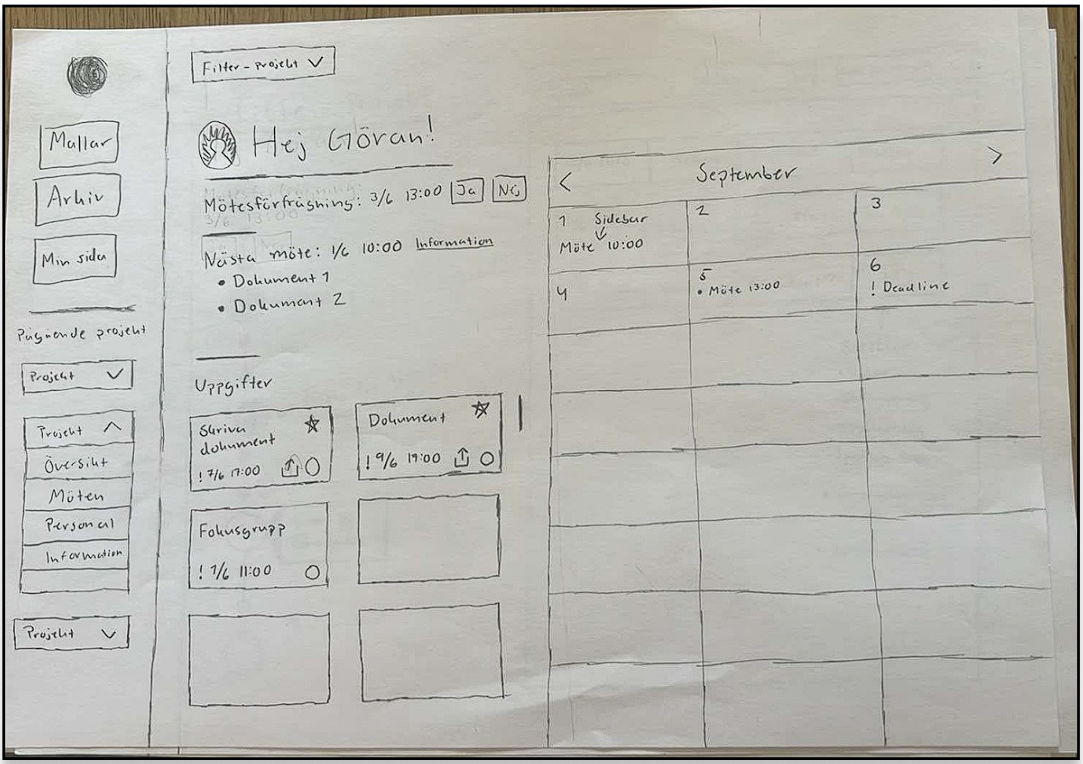 Mallar
Arkiv
Min sida
Pågående projekt
Projekt
Projekt
Översikt
Möten
Personal
Information
Projekt
Filter - projekt
Hej Göran!
Mötesförfrågning: 3/6 13:00 Ja Nej
Nästa möte: 1/6 10:00 Information
• Dokument 1
• Dokument 2
Uppgifter
Skriva
dokument
! 7/6 17:00
Dokument
! 9/6 19:00
Fokusgrupp
! 7/6 11:00
< September >
1 Sidebar
Möte 10:00
2
3
4
5
• Möte 13:00
6
! Deadline